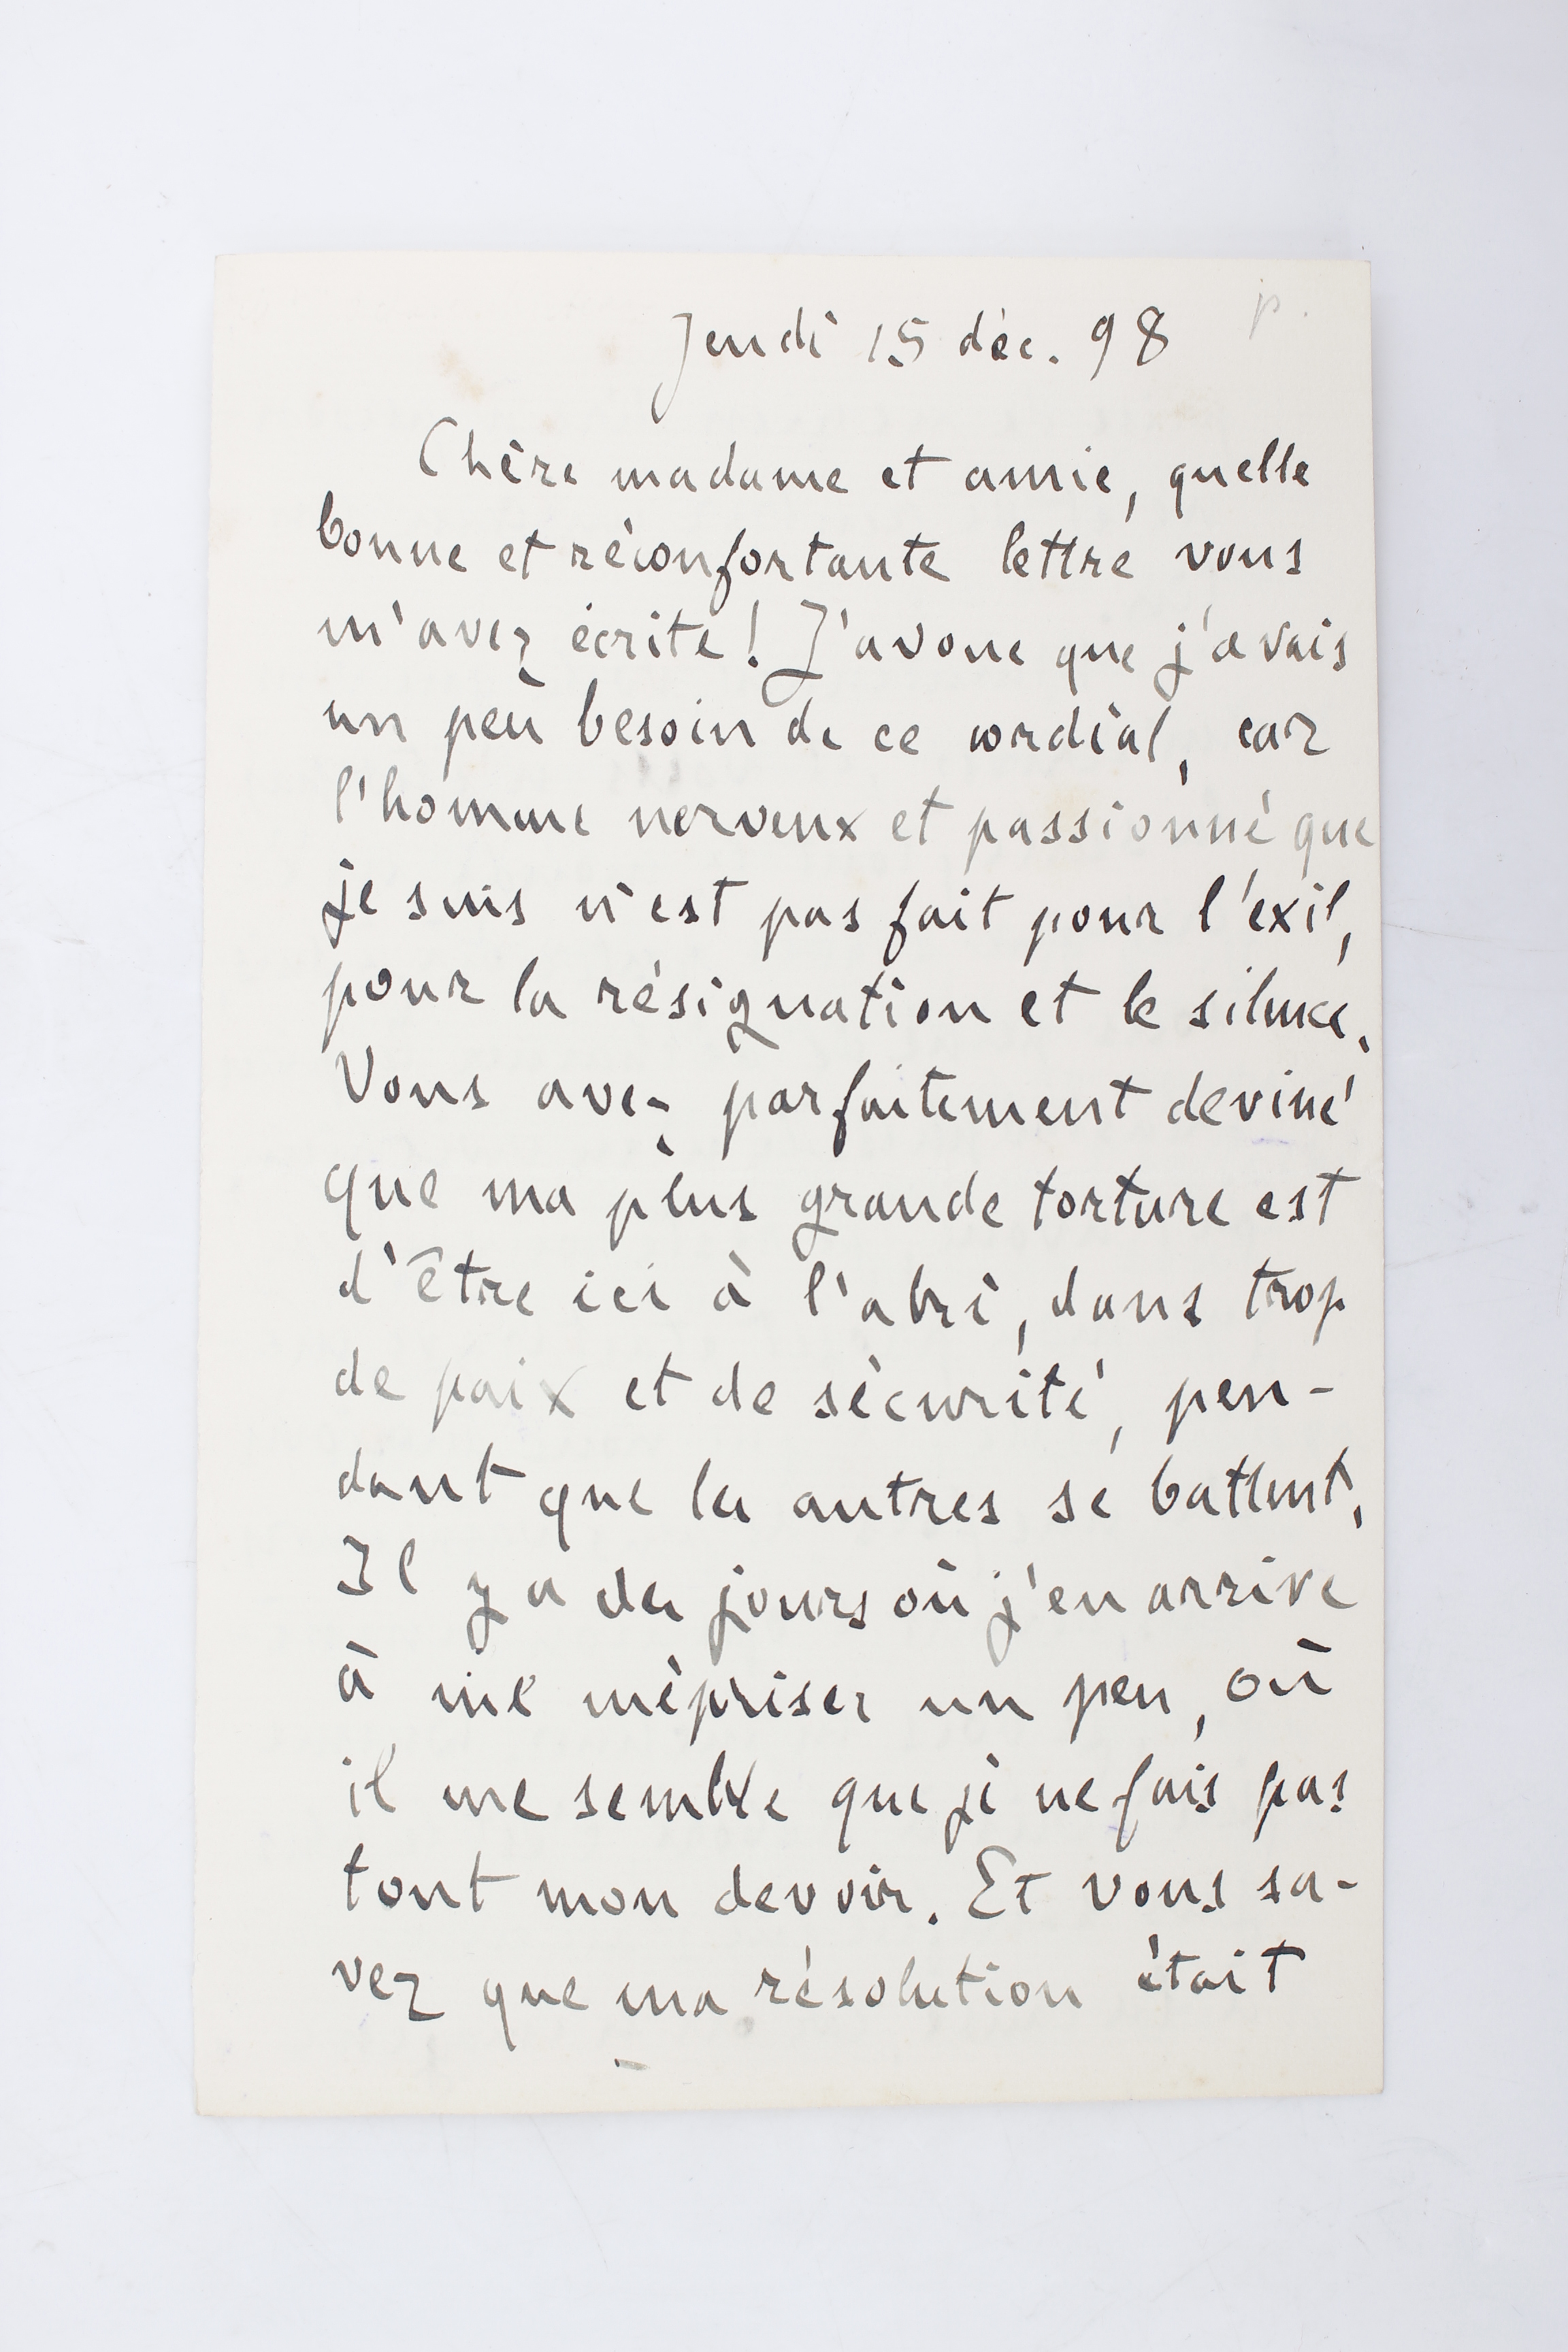 p.
Jeudi 15 déc. 98
Chère madame et amie, quelle
bonne et réconfortante lettre vous
m'avez écrite! J'avoue que j'avais
un peu besoin de ce cordial, car
l'homme nerveux et passionné que
je suis n'est pas fait pour l'exil,
pour la résignation et le silence.
Vous avez parfaitement deviné
que ma plus grande torture est
d'être ici à l'abri, dans trop
de paix et de sécurité, pen-
dant que les autres se battent.
Il y a des jours où j'en arrive
à me mépriser un peu, où
il me semble que je ne fais pas
tout mon devoir. Et vous sa-
vez que ma résolution était